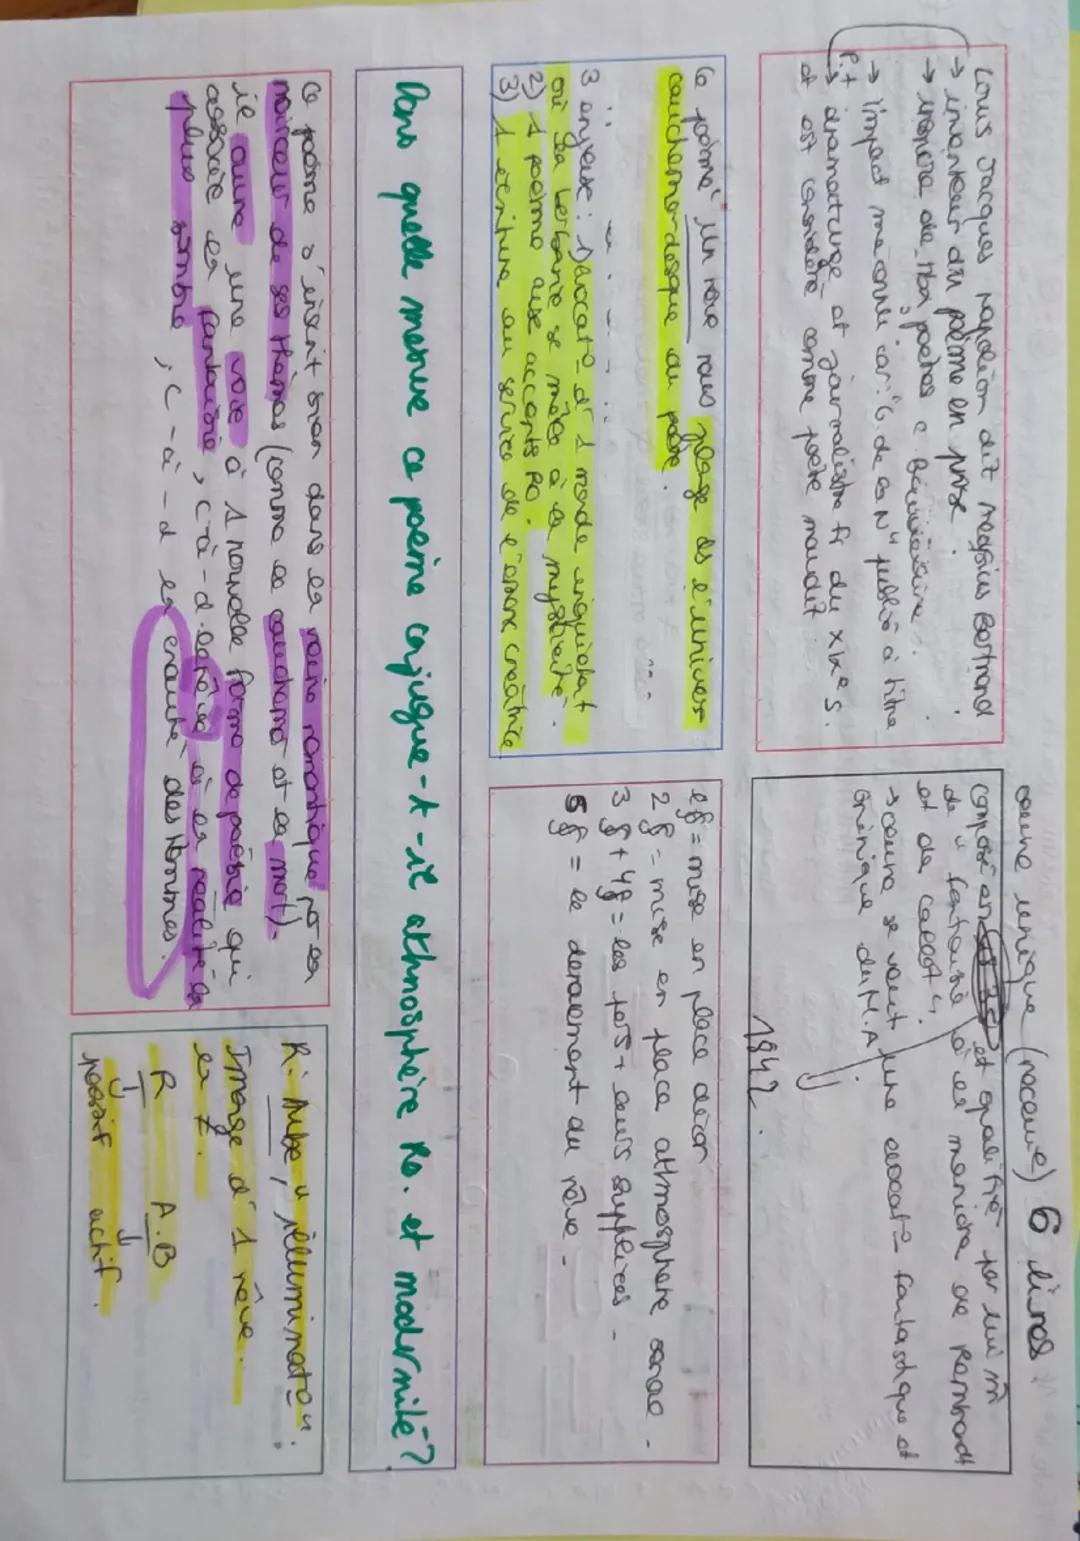 Louis Jacques Napoléon dit Aloysius Bertrand
→ inventeur du poème en prose.
→ inspire de nbx poètes c Baudelaire.
→ impact méconnu car: "G. de la N" publié à titre
P.+
→ dramaturge et journaliste fr du XIXe s.
et est considéré comme poète maudit
oeuvre unique (recueil) 6 livres
composé en et qualifié par lui m̂
de "fantaisie à la manière de Rembrandt
et de Callot".
→ oeuvre se veut une évocat° fantastique et
onirique du M.A.
1842.
Ce poème Un rêve nous plonge ds l'univers
cauchemardesque du poète.
3 enjeux: 1) évocat° d'1 monde inquiétant
où la barbarie se mêle à la mysticité.
2) 1 poème aux accents Ro.
3) 1 écriture au service de l'œuvre créatrice
1§ = mise en place décor
2§ = mise en place athmosphère
3§ + 4§ = les pers + leurs supplices -
5§ = le dénouement du rêve -
Dans quelle mesure ce poème conjugue-t-il athmosphère Ro. et modernité?
Ce poème s'inscrit bien dans la veine romantique par la
noirceur de ses thèmes (comme le cauchemar et la mort).
il ouvre une voie à 1 nouvelle forme de poésie qui
associe la fantaisie, c-à-d le rêve à la réalité la
plus sombre, c-à-d la cruauté des Hommes.
R: Aube, "illuminat°".
Image d'1 rêve.
la ≠.
R A.B
↓ ↓
passif actif.